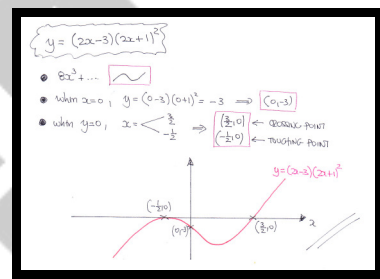 y = (2x-3)(2x+1)²
• 8x³+....
• When x=0, y = (0-3)(0+1)² = -3 ⟹ (0,-3)
• when y=0, x = < 3/2 -1/2 ⟹ (3/2,0) ← CROSSING POINT
(-1/2,0) ← TOUCHING POINT
y=(2x-3)(2x+1)²
(-1/2,0)
(0,-3)
(3/2,0)
x